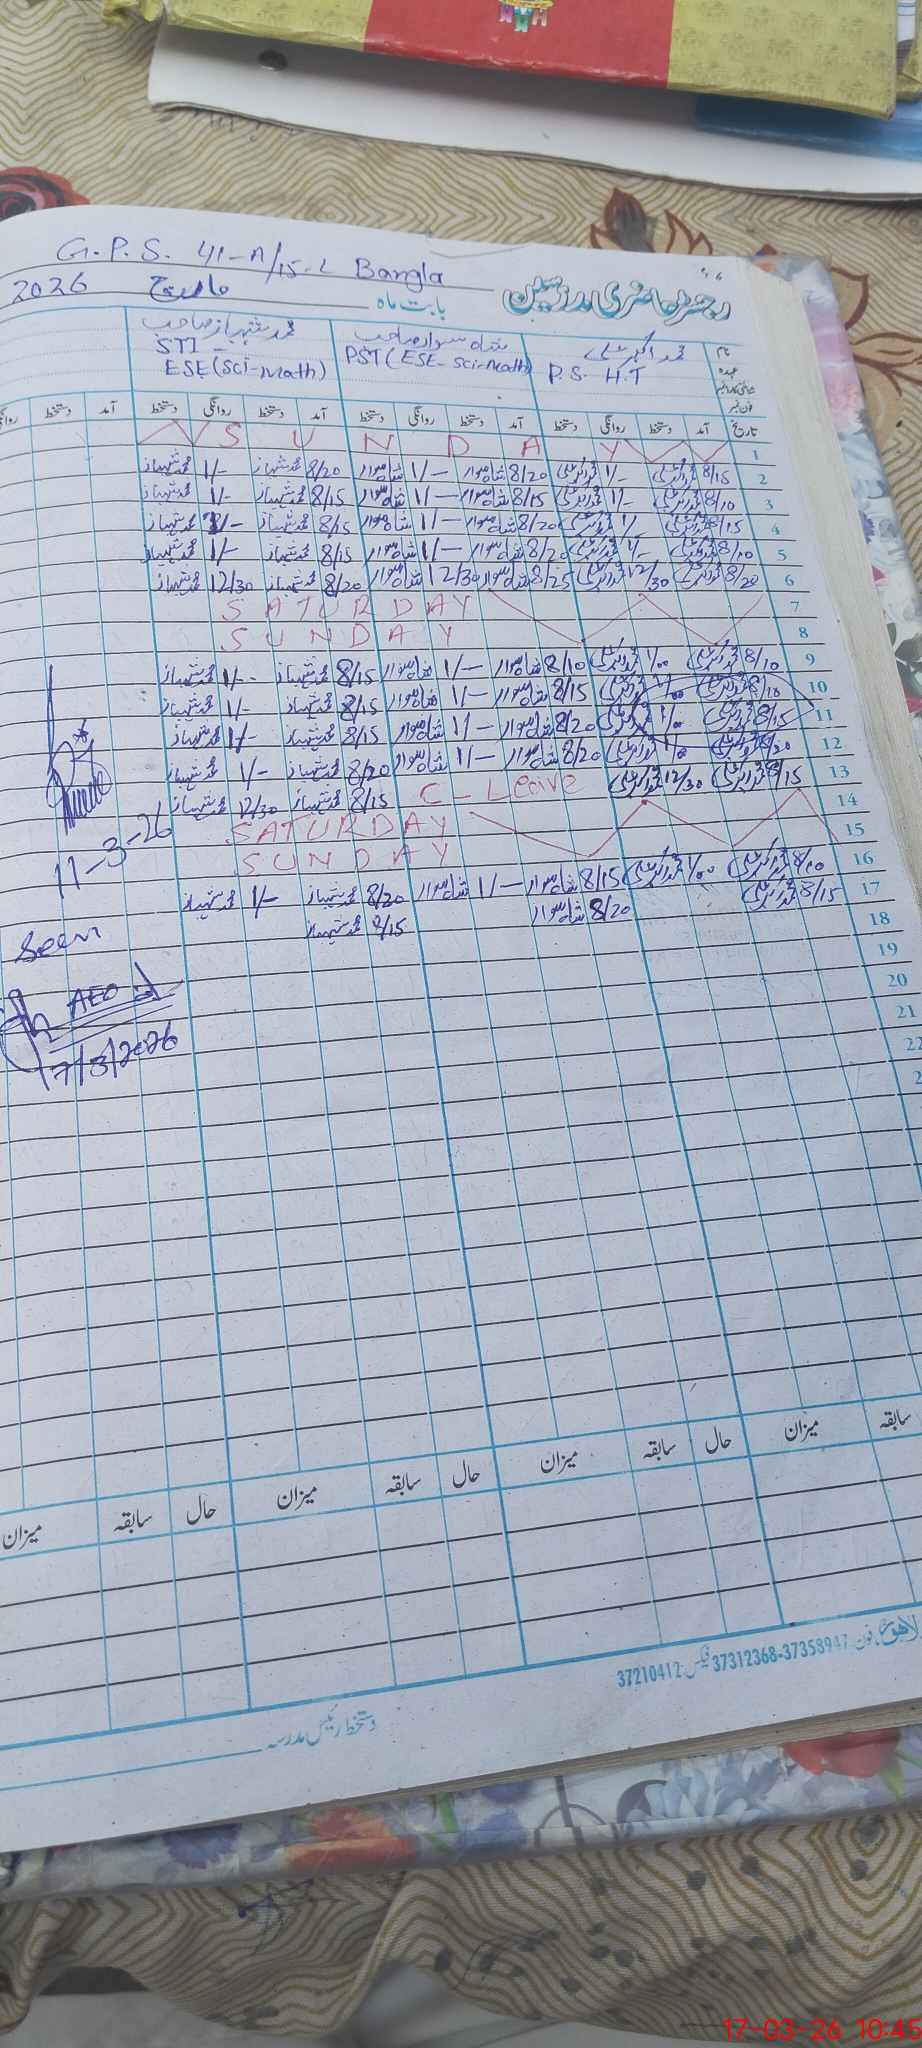 G.P.S. 41-A/15-L Bangla
رجسٹر حاضری مدرسین بابت ماہ مارچ 2026
نام محمد اکبر علی شاہ سوار صاحب محمد شہباز صاحب
عہدہ P.S.H.T PST (ESE-Sci-Math) STI - ESE (Sci-Math)
تاریخ آمد دستخط روانگی دستخط آمد دستخط روانگی دستخط آمد دستخط روانگی دستخط آمد دستخط
1 SUNDAY
2 8/15 1/- 8/20 شاہ سوار 1/- شاہ سوار 8/20 محمد شہباز 1/- محمد شہباز
3 8/10 1/- 8/15 شاہ سوار 1/- شاہ سوار 8/15 محمد شہباز 1/- محمد شہباز
4 8/15 1/- 8/20 شاہ سوار 1/- شاہ سوار 8/15 محمد شہباز 1/- محمد شہباز
5 8/10 1/- 8/20 شاہ سوار 1/- شاہ سوار 8/15 محمد شہباز 1/- محمد شہباز
6 8/20 12/30 8/25 شاہ سوار 12/30 شاہ سوار 8/20 محمد شہباز 12/30 محمد شہباز
7 SATURDAY
8 SUNDAY
9 8/10 1/00 8/10 شاہ سوار 1/- شاہ سوار 8/15 محمد شہباز 1/- محمد شہباز
10 8/10 1/00 8/15 شاہ سوار 1/- شاہ سوار 8/15 محمد شہباز 1/- محمد شہباز
11 8/15 1/00 8/20 شاہ سوار 1/- شاہ سوار 8/15 محمد شہباز 1/- محمد شہباز
12 8/20 1/00 8/20 شاہ سوار 1/- شاہ سوار 8/20 محمد شہباز 1/- محمد شہباز
13 8/15 12/30 C-Leave 8/15 محمد شہباز 12/30 محمد شہباز
14 SATURDAY
15 SUNDAY
16 8/10 1/00 8/15 شاہ سوار 1/- شاہ سوار 8/20 محمد شہباز 1/- محمد شہباز
17 8/15 8/20 شاہ سوار 8/15 محمد شہباز
18
19
20
21
22
11-3-26
Seen
AEO
17/3/2026
سابقہ میزان حال سابقہ میزان حال سابقہ میزان حال سابقہ میزان
لاہور، فون: 37358947-37312368 فیکس: 37210412
دستخط رئیس مدرسہ
17-03-26 10:45